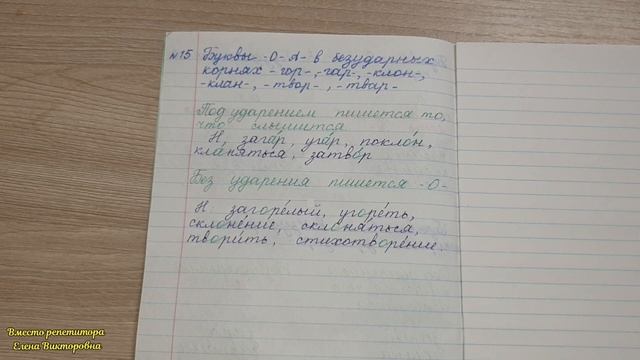 №15 Буквы -О- А- в безударных
корнях - гор-, -гар-, -клон-,
-клан-, - твор- , - твар-
Под ударением пишется то,
что слышится
Н, зага́р, уга́р, покло́н,
кла́няться, затво́р
Без ударения пишется -О-
Н. загоре́лый, угоре́ть,
склоне́ние, склоня́ться,
твори́ть, стихотворе́ние.
Вместо репетитора
Елена Викторовна